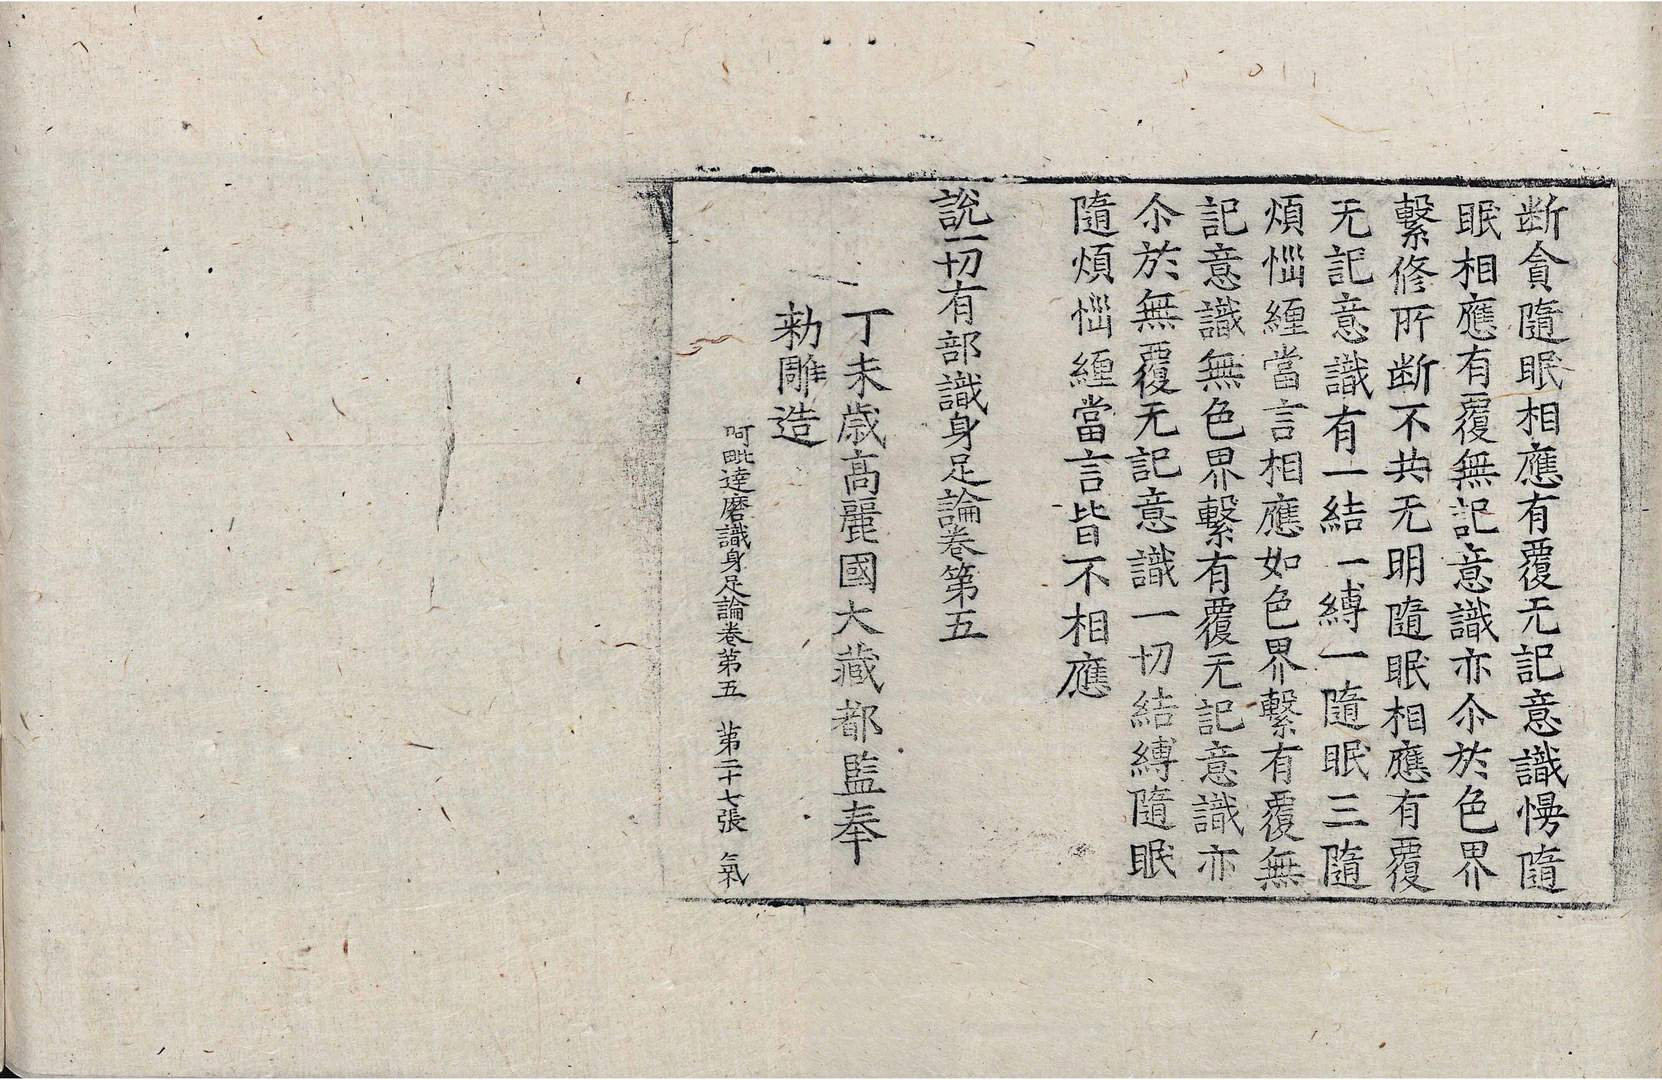 断貪隨眠相應有覆无記意識慢隨
眠相應有覆無記意識亦尒於色界
繫修所断不共无明隨眠相應有覆
无記意識有一結一縛一隨眠三隨
煩惱纏當言相應如色界繫有覆無
記意識無色界繫有覆无記意識亦
尒於無覆无記意識一切結縛隨眠
隨煩惱纏當言皆不相應
說一切有部識身足論卷第五
丁未歲高麗國大藏都監奉
勑雕造
阿毗達磨識身足論卷第五 第二十七張 氣